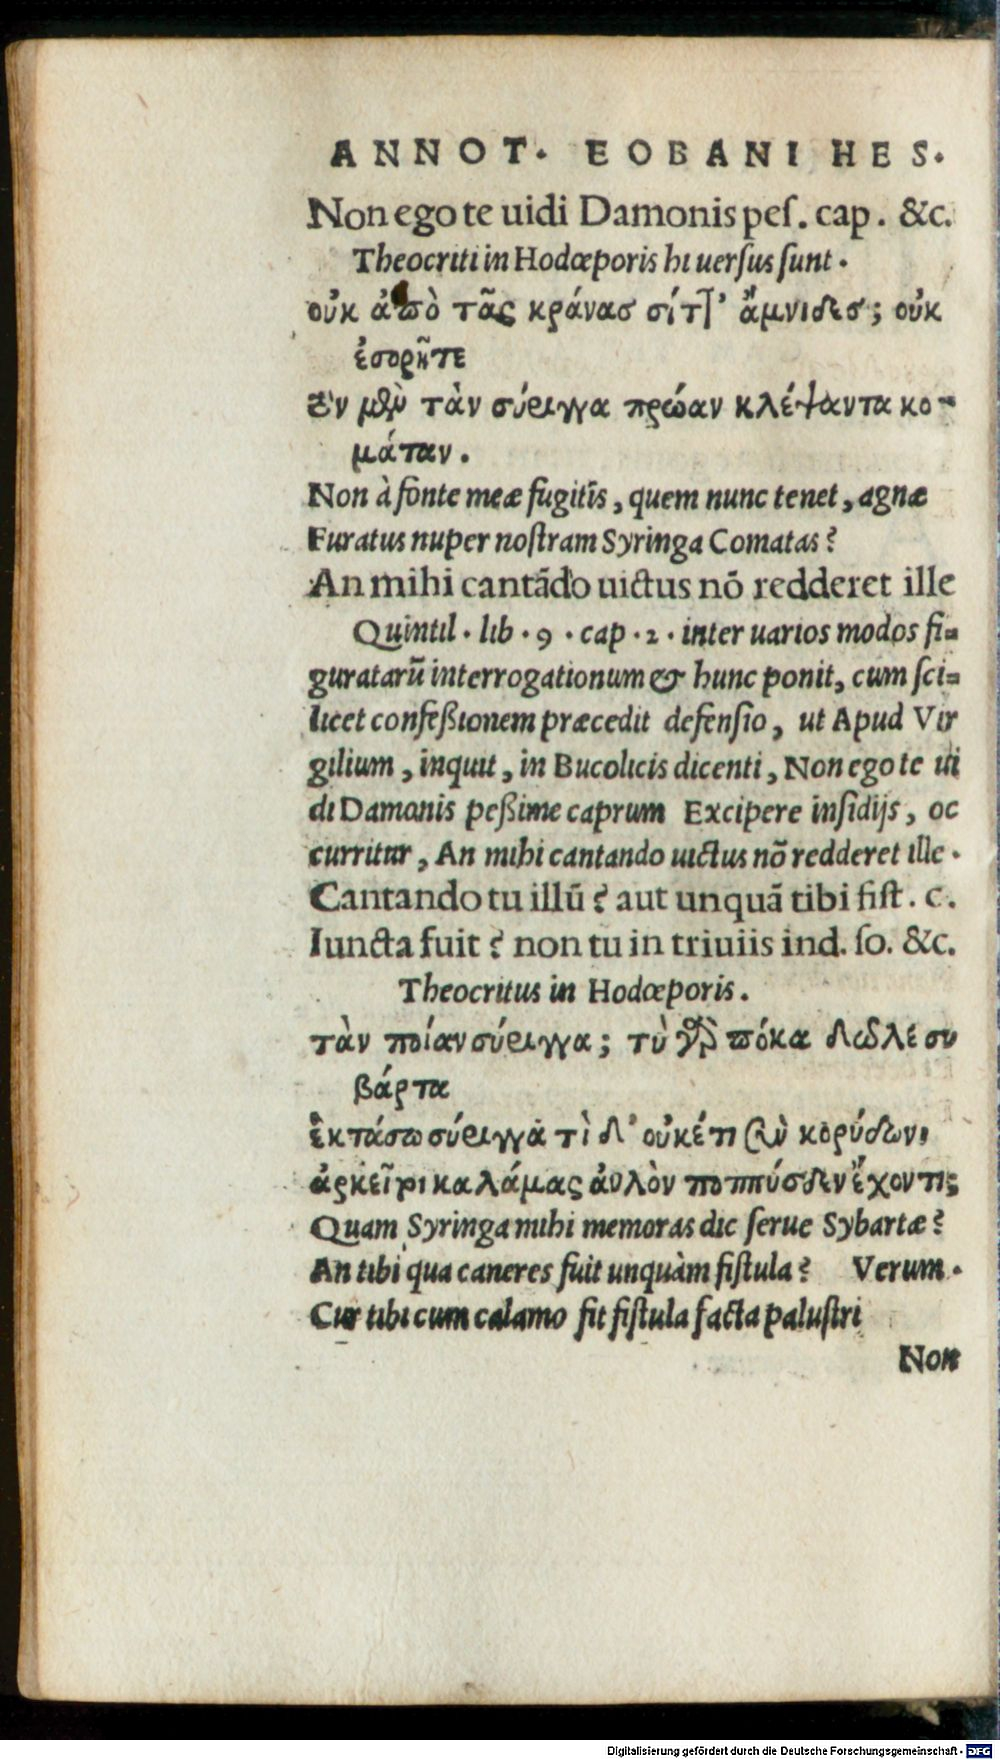 ANNOT. EOBANI HES.
Non ego te uidi Damonis peſ. cap. &c.
Theocriti in Hodœporis hi uerſus ſunt.
οὐκ ἀπὸ τᾶς κράνασ σίττ' ἄμνιδεσ; οὐκ
ἐσορῆτε
τὸν μεῦ τὰν σύριγγα πρώαν κλέψαντα κο-
μάταν.
Non à fonte meæ fugitîs, quem nunc tenet, agnæ
Furatus nuper noſtram Syringa Comatas?
An mihi cantādo uictus nō redderet ille
Quintil. lib. 9. cap. 2. inter uarios modos fi=
guratarū interrogationum & hunc ponit, cum ſci=
licet confeßionem præcedit defenſio, ut Apud Vir
gilium, inquit, in Bucolicis dicenti, Non ego te ui
di Damonis peßime caprum Excipere inſidijs, oc
curritur, An mihi cantando uictus nō redderet ille.
Cantando tu illū? aut unquā tibi fiſt. c.
Iuncta fuit? non tu in triuiis ind. ſo. &c.
Theocritus in Hodœporis.
τὰν ποίαν σύριγγα; τὺ γὰρ πόκα δῶλε συ
βάρτα
ἐκτάσω σύριγγα τὶ δ' οὐκέτι σὺν κορύδωνι
ἀρκεῖ ρι καλάμας ἀυλὸν ποππύσδεν ἔχοντι;
Quam Syringa mihi memoras dic ſerue Sybartæ?
An tibi qua caneres fuit unquàm fiſtula? Verum.
Cur tibi cum calamo fit fiſtula facta paluſtri
Non
Digitalisierung gefördert durch die Deutsche Forschungsgemeinschaft - DFG